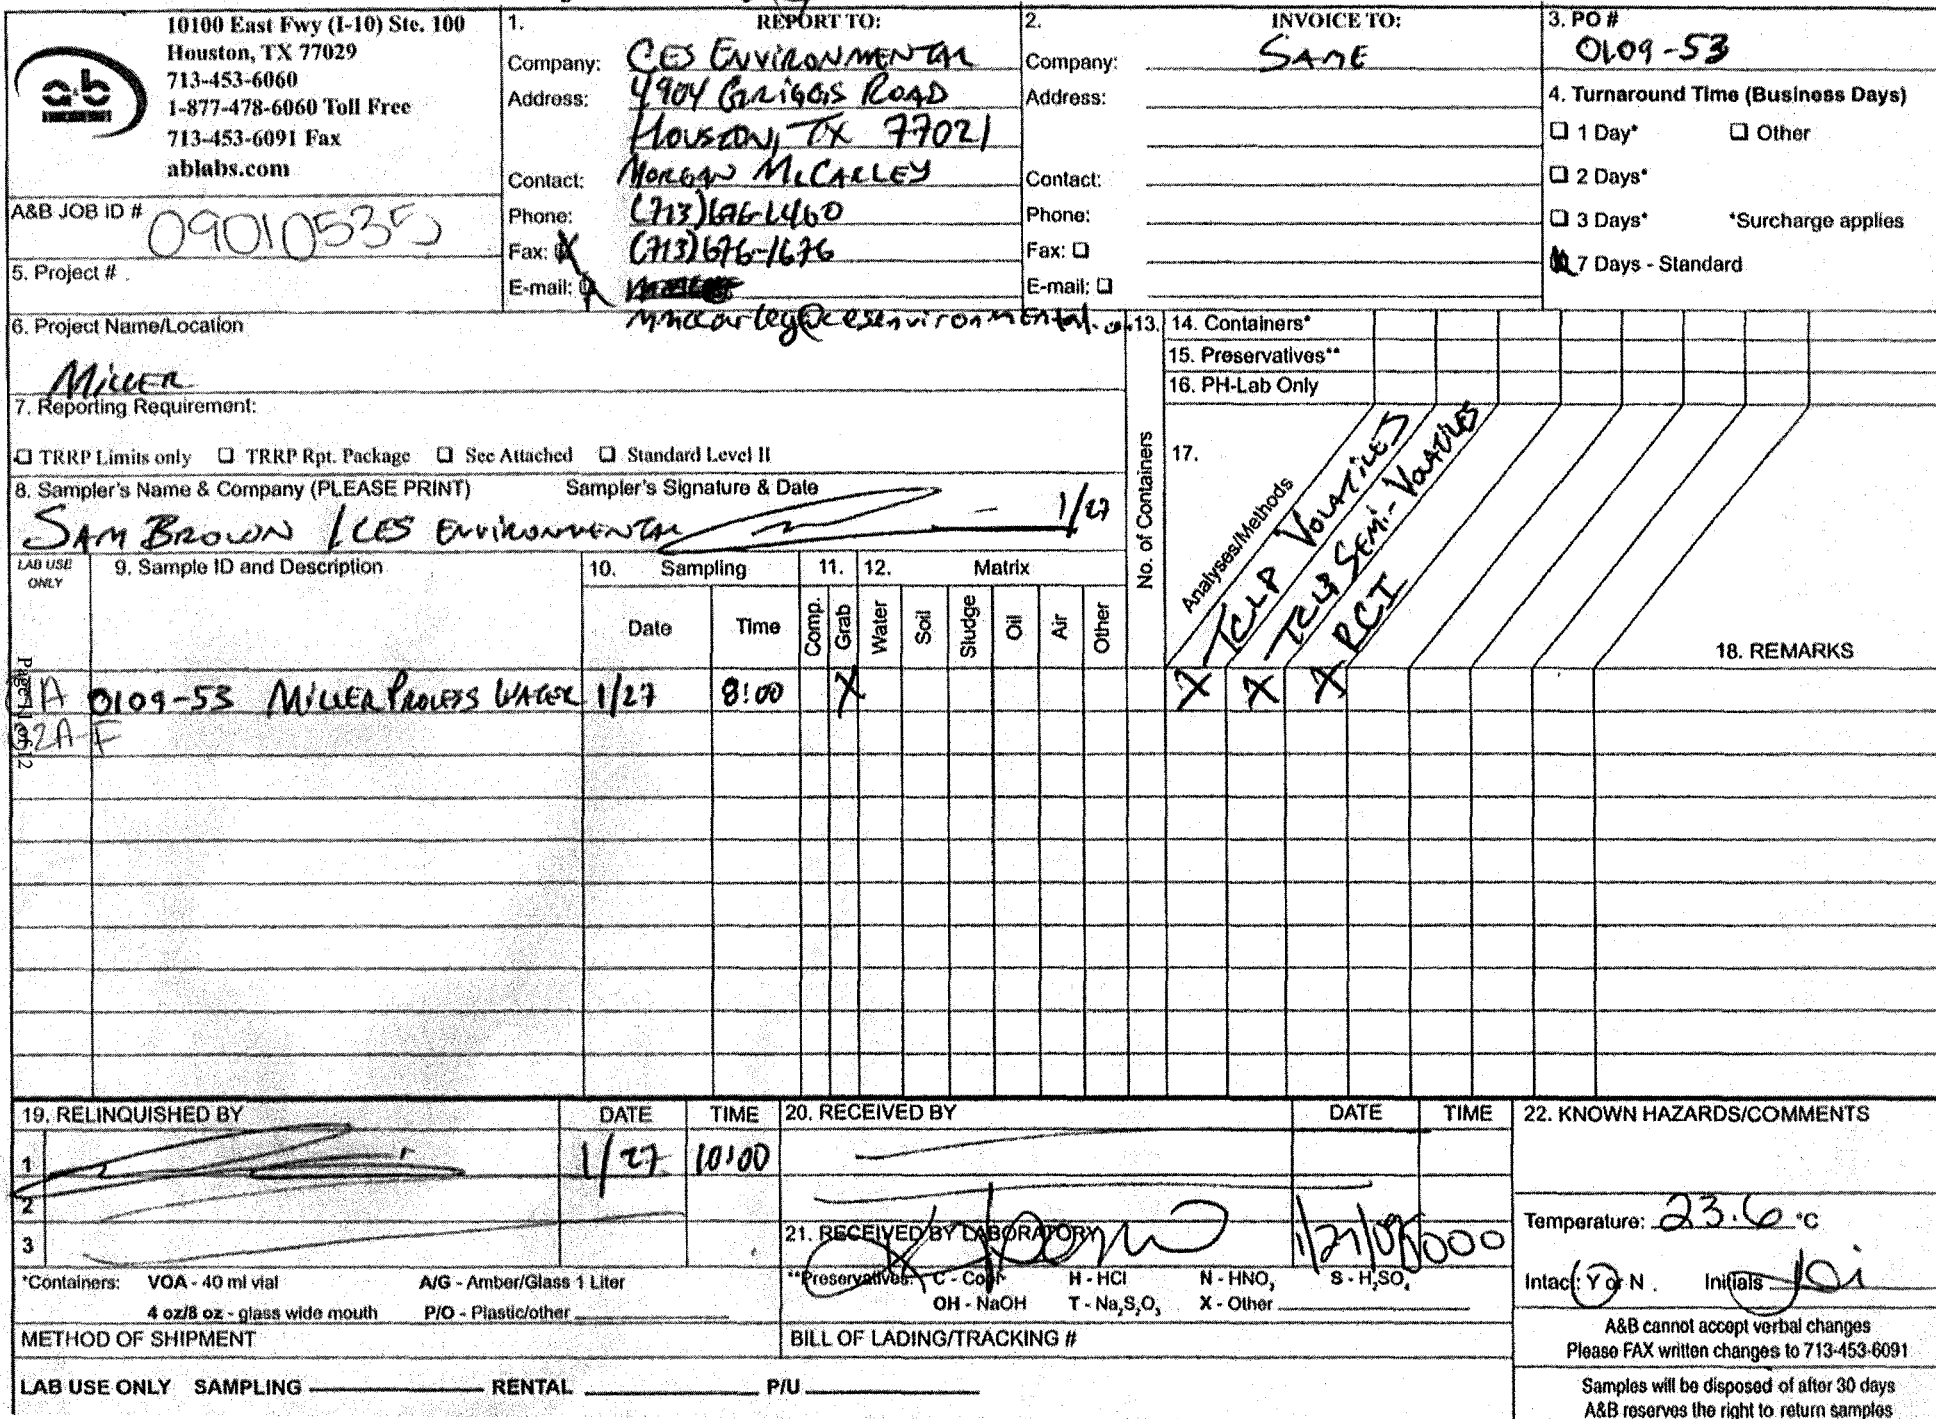 a&b
10100 East Fwy (I-10) Ste. 100
Houston, TX 77029
713-453-6060
1-877-478-6060 Toll Free
713-453-6091 Fax
ablabs.com
A&B JOB ID # 09010535
5. Project #
1. REPORT TO:
Company: CES ENVIRONMENTAL
Address: 4904 GRIGGS ROAD
HOUSTON, TX 77021
Contact: MORGAN McCARLEY
Phone: (713)676-1460
Fax: X (713)676-1676
E-mail: X
mmccarley@cesenvironmental.
2. INVOICE TO:
Company: SAME
Address:
Contact:
Phone:
Fax: ☐
E-mail: ☐
3. PO #
0109-53
4. Turnaround Time (Business Days)
☐ 1 Day* ☐ Other
☐ 2 Days*
☐ 3 Days* *Surcharge applies
7 Days - Standard
6. Project Name/Location
MILLER
7. Reporting Requirement:
☐ TRRP Limits only ☐ TRRP Rpt. Package ☐ See Attached ☐ Standard Level II
8. Sampler's Name & Company (PLEASE PRINT) Sampler's Signature & Date
SAM BROWN / CES ENVIRONMENTAL 1/27
13. No. of Containers
14. Containers*
15. Preservatives**
16. PH-Lab Only
17. Analyses/Methods
TCLP VOLATILES
TCLP SEMI-VOLATILES
RCI
18. REMARKS
LAB USE ONLY
9. Sample ID and Description
10. Sampling 11. 12. Matrix
Date Time Comp. Grab Water Soil Sludge Oil Air Other
Page 1 of 12
1A 0109-53 MILLER PROCESS WATER 1/27 8:00 X X X X
02A-F
19. RELINQUISHED BY DATE TIME 20. RECEIVED BY DATE TIME
1 1/27 10:00
2
3
21. RECEIVED BY LABORATORY 1/27/09 1000
22. KNOWN HAZARDS/COMMENTS
Temperature: 23.6 °C
Intact: Y or N. Initials
*Containers: VOA - 40 ml vial A/G - Amber/Glass 1 Liter
4 oz/8 oz - glass wide mouth P/O - Plastic/other
**Preservatives: C - Cool H - HCl N - HNO3 S - H2SO4
OH - NaOH T - Na2S2O3 X - Other
METHOD OF SHIPMENT
BILL OF LADING/TRACKING #
A&B cannot accept verbal changes
Please FAX written changes to 713-453-6091
LAB USE ONLY SAMPLING RENTAL P/U
Samples will be disposed of after 30 days
A&B reserves the right to return samples